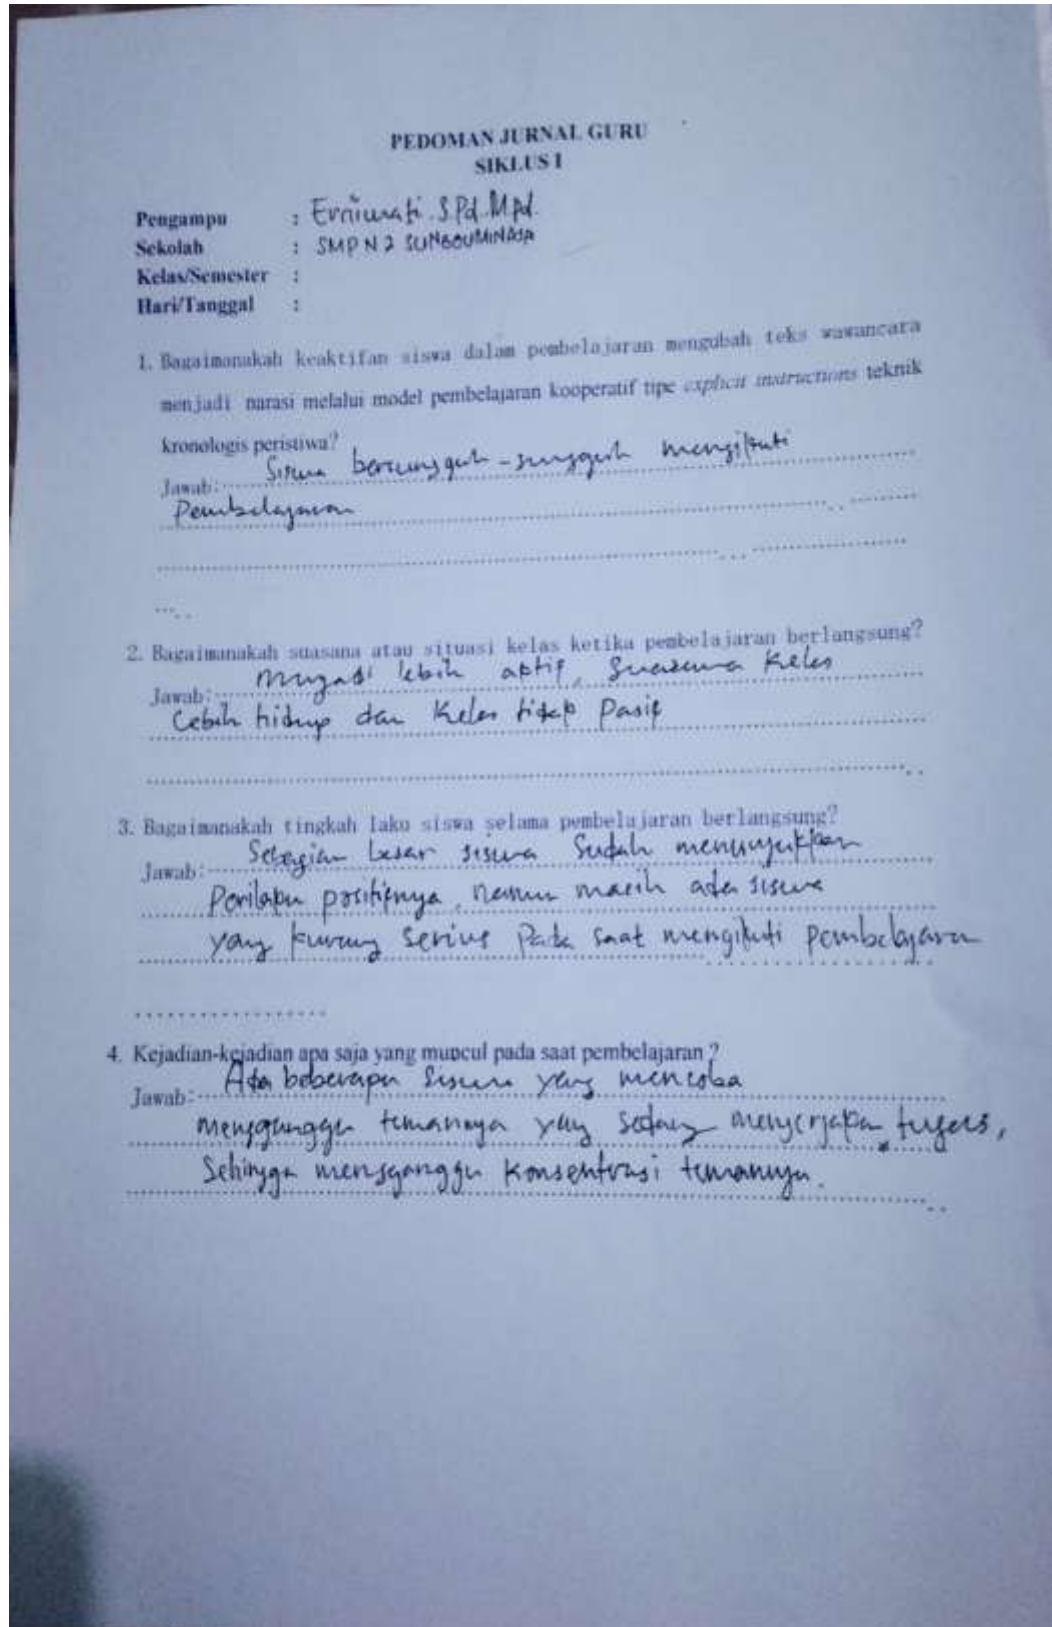 PEDOMAN JURNAL GURU
SIKLUS I
Pengampu : Erniwati. S.Pd. M.Pd.
Sekolah : SMP N 2 SUNGGUMINASA
Kelas/Semester :
Hari/Tanggal :
1. Bagaimanakah keaktifan siswa dalam pembelajaran mengubah teks wawancara
menjadi narasi melalui model pembelajaran kooperatif tipe explicit instructions teknik
kronologis peristiwa?
Jawab: Siswa bersungguh-sungguh mengikuti
Pembelajaran
2. Bagaimanakah suasana atau situasi kelas ketika pembelajaran berlangsung?
Jawab: Menjadi lebih aktif, Suasana Kelas
Lebih hidup dan Kelas tidak Pasif
3. Bagaimanakah tingkah laku siswa selama pembelajaran berlangsung?
Jawab: Sebagian besar siswa Sudah menunjukkan
Perilaku positifnya, namun masih ada siswa
yang kurang serius Pada saat mengikuti pembelajaran
4. Kejadian-kejadian apa saja yang muncul pada saat pembelajaran ?
Jawab: Ada beberapa Siswa yang mencoba
mengganggu temannya yang sedang mengerjakan tugas,
Sehingga mengganggu Konsentrasi temannya.